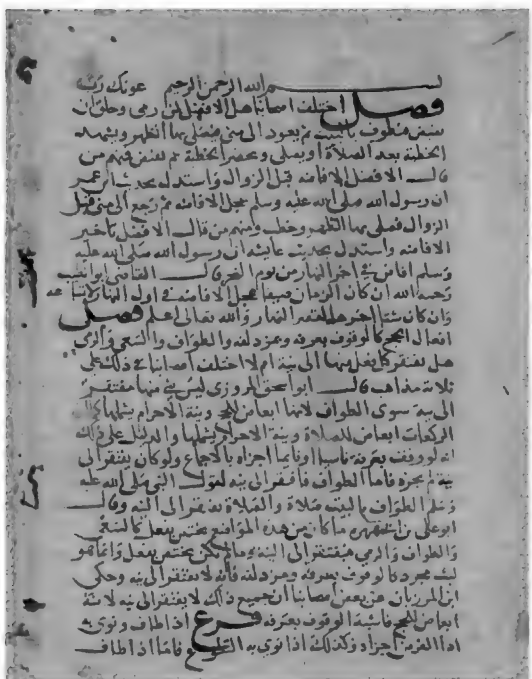 بسم الله الرحمن الرحيم عونك رب
فصل اختلف اصحابنا هل الافضل لمن رمى وحلق ان
يفيض فيطوف بالبيت ثم يعود الى منى فيصلي بها الظهر ويشهد
الخطبة بعد الصلاة او يصلي ويحضر الخطبة ثم يفيض فمنهم من
قال الافضل الافاضة قبل الزوال واستدل بحديث ابن عمر
ان رسول الله صلى الله عليه وسلم عجل الافاضة ثم رجع الى منى قبل
الزوال فصلى بها الظهر وخطب ومنهم من قال الافضل تاخير
الافاضة واستدل بحديث عايشه ان رسول الله صلى الله عليه
وسلم افاض في اخر النهار من يوم النحر قال القاضي ابو الطيب
رحمه الله ان كان الزمان صيفا عجل الافاضة في اول النهار
وان كان شتا اخرها النهار والله تعالى اعلم فصل
افعال الحج كالوقوف بعرفه وبمزدلفه والطواف والسعي والرمي
هل يفتقر كل فعل منها الى نية ام لا اختلف اصحابنا في ذلك على
ثلاثة مذاهب قال ابو اسحق المروزي ليس شي منها مفتقر
الى نية سوى الطواف لانها ابعاض للحج ونية الاحرام يشملها كما ان
الركعات ابعاض للصلاة ونية الاحرام يشملها والدليل على ذلك
انه لو وقف بعرفة ناسيا او نايما اجزاه بالاجماع ولو كان يفتقر الى
نية لم يجزه فاما الطواف فافتقر الى نيه لقول النبي صلى الله عليه
وسلم الطواف بالبيت صلاة والصلاة تفتقر الى النيه وقال
ابو علي بن ابي هريره ما كان من هذه المواضع يختص بفعل كالسعي
والطواف والرمي فيفتقر الى النية وما لم يكن يختص بفعل وانما هو
لبث مجرد كالوقوف بعرفه وبمزدلفه فانه لا يفتقر الى نيه وحكى
ابن المرزبان عن بعض اصحابنا ان جميع ذلك لا يفتقر الى نيه لانه
ابعاض للحج فاشبه الوقوف بعرفه فرع اذا طاف ونوى به
اداء الفرض اجزاه وكذلك اذا نوى به التطوع فاما اذا طاف